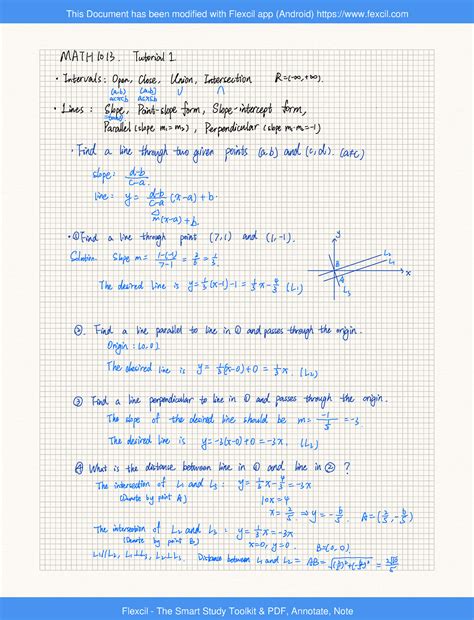 This Document has been modified with Flexcil app (Android) https://www.flexcil.com
MATH 1013. Tutorial 1
· Intervals: Open, Close, Union, Intersection R=(-∞,+∞).
(a,b) [a,b] ∪ ∩
a<x<b a≤x≤b
· Lines: Slope, Point-slope form, Slope-intercept form,
Parallel (slope m₁=m₂), Perpendicular (slope m₁·m₂=-1)
· Find a line through two given points (a,b) and (c,d). (a≠c)
slope: d-b/c-a
line: y = d-b/c-a (x-a) + b.
m(x-a)+b.
· ① Find a line through point (7,1) and (1,-1).
Solution. Slope m = 1-(-1)/7-1 = 2/6 = 1/3.
The desired line is y=1/3(x-1)-1 = 1/3x-4/3 (L₁)
y
x
L₂
L₁
L₃
B
②. Find a line parallel to line in ① and passes through the origin.
Origin: (0,0)
The desired line is y=1/3(x-0)+0 = 1/3x (L₂)
③ Find a line perpendicular to line in ① and passes through the origin.
The slope of the desired line should be m= -1/1/3 = -3
The desired line is y=-3(x-0)+0 = -3x. (L₃)
④ What is the distance between line in ① and line in ② ?
The intersection of L₁ and L₃: y=1/3x-4/3=-3x
(Denote by point A) 10x=4
x=2/5 ⇒ y=-6/5. A=(2/5,-6/5)
The intersection of L₂ and L₃: y=1/3x=-3x
(Denote by point B) x=0, y=0. B=(0,0).
L₁//L₂, L₁⊥L₃, L₂⊥L₃. Distance between L₁ and L₂ = AB=√(2/5)²+(-6/5)² = 2√10/5
Flexcil - The Smart Study Toolkit & PDF, Annotate, Note